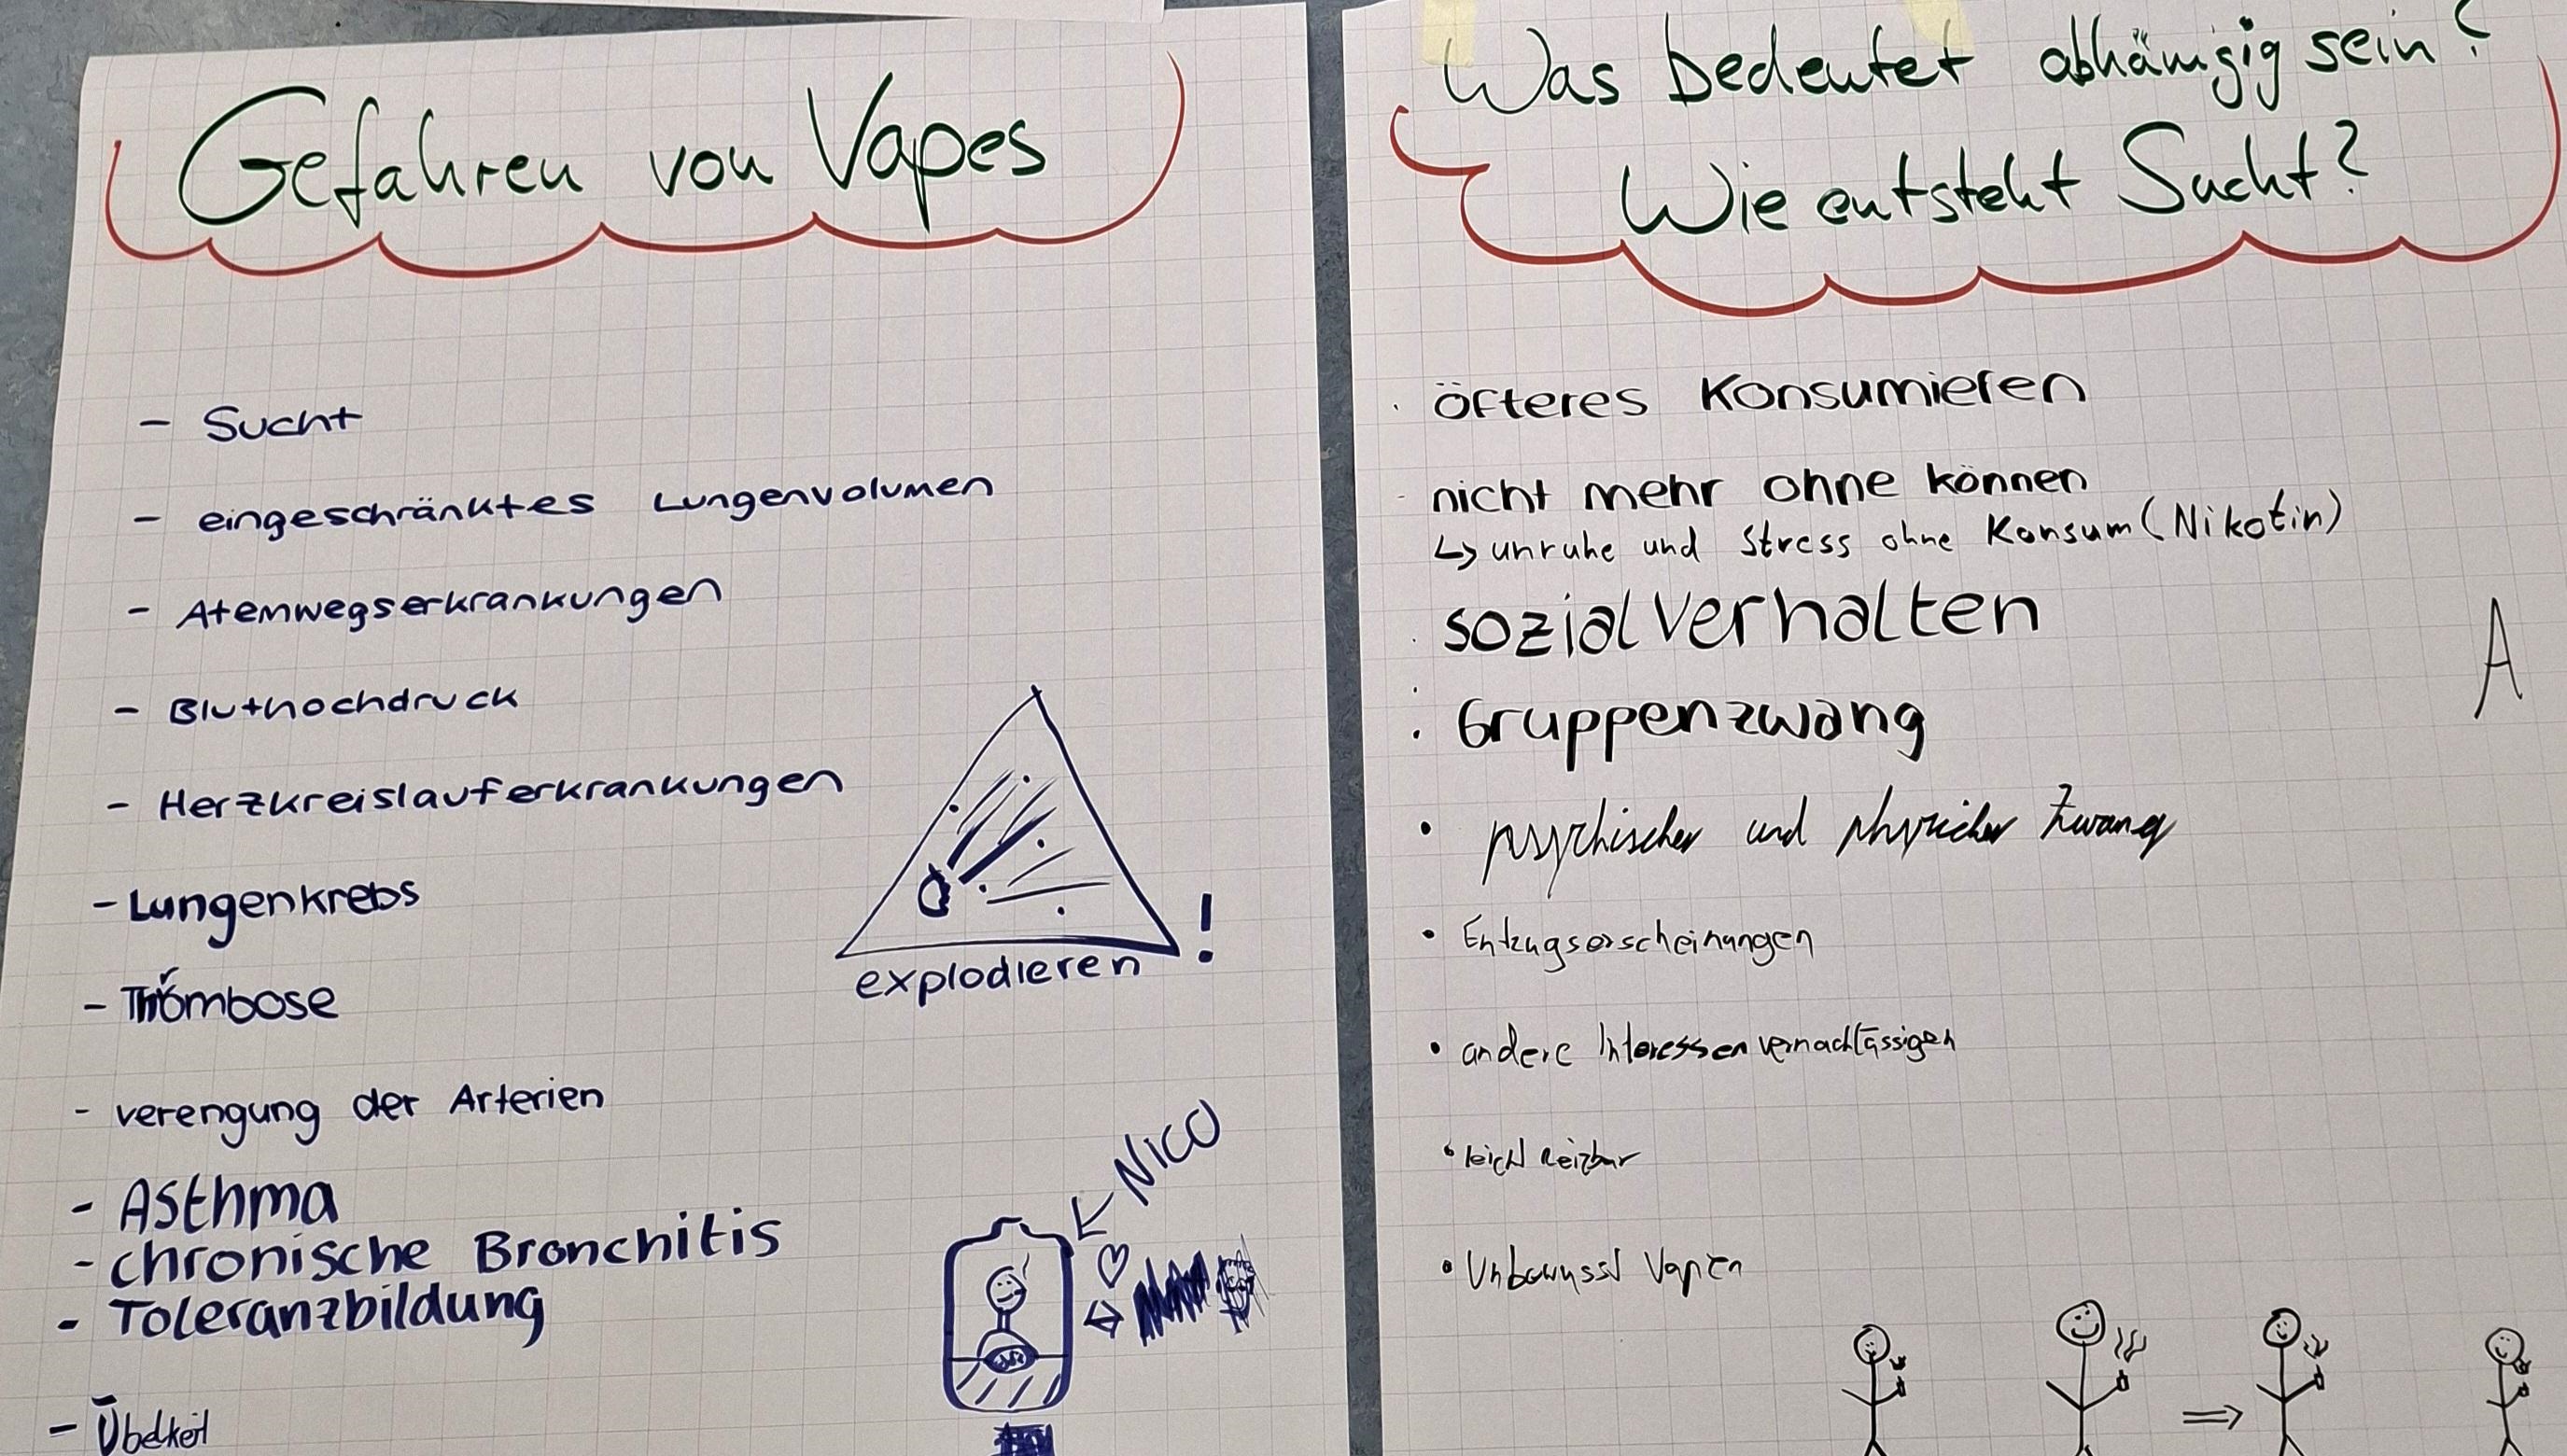 Gefahren von Vapes
- Sucht
- eingeschränktes Lungenvolumen
- Atemwegserkrankungen
- Bluthochdruck
- Herzkreislauferkrankungen
- Lungenkrebs
- Trombose
- verengung der Arterien
- Asthma
- chronische Bronchitis
- Toleranzbildung
- Übelkeit
explodieren !
NICO
Was bedeutet abhängig sein?
Wie entsteht Sucht?
· öfteres Konsumieren
- nicht mehr ohne können
↳ unruhe und Stress ohne Konsum (Nikotin)
· sozialverhalten
: Gruppenzwang
• psychischer und physicher Zwang
• Entzugserscheinungen
• andere Interessen vernachlässigen
• leicht Reizbar
• Unbewusst Vapen
A